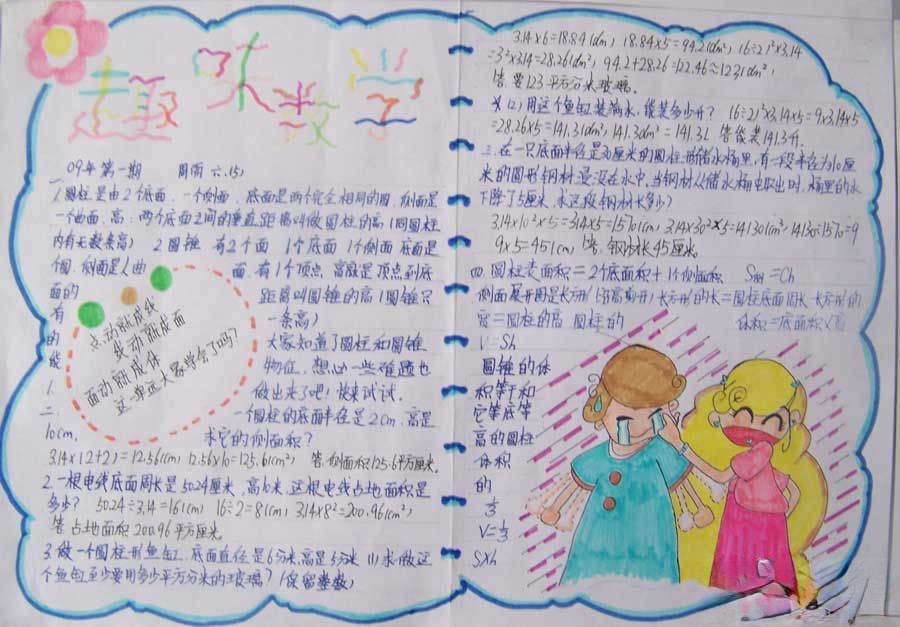 趣味数学
09年第一期 周雨 六.(5)
一
1.圆柱是由2个底面,一个侧面,底面是两个完全相同的圆,侧面是
一曲面,高:两个底面之间的垂直距离叫做圆柱的高(同圆柱
内有无数条高) 2圆锥 有2个面 1个底面 1个侧面 底面是
个圆,侧面是个曲面,有1个顶点 高就是顶点到底
面的距离叫圆锥的高(圆锥只
有一条高)
点动就成线
线动就成面
面动就成体
这里面大家学会了吗?
大家知道了圆柱和圆锥
的物征,想必一些难题也
能做出来了吧!快来试试
二
1.一个圆柱的底面半径是2cm,高是
10cm, 求它的侧面积?
3.14×(2+2)=12.56(cm) 12.56×10=125.6(cm²) 答:侧面积125.6平方厘米.
2.一根电线底面周长是50.24厘米,高10米,这根电线占地面积是
多少? 50.24÷3.14=16(cm) 16÷2=8(cm) 3.14×8²=200.96(cm²)
答占地面积200.96平方厘米
3.做一个圆柱形鱼缸,底面直径是6分米,高是5分米 (1)求做这
个鱼缸至少要用多少平方分米的玻璃?(保留整数)
3.14×6=18.84(dm) 18.84×5=94.2(dm²) (6÷2)²×3.14
=3²×3.14=28.26(dm²) 94.2+28.26=122.46≈123(dm²)
答:要123平方分米玻璃.
(2)用这个鱼缸装满水,能装多少升? (6÷2)²×3.14×5=9×3.14×5
=28.26×5=141.3(dm³) 141.3dm³=141.3L 答:能装141.3升.
三.在一只底面半径是30厘米的圆柱形储水桶里,有一段半径为10厘
米的圆形钢材浸没在水中,当钢材从储水桶里取出时,桶里的水
下降了5厘米,求这段钢材长多少?
3.14×10²×5=314×5=1570(cm) 3.14×30²×5=14130(cm³) 14130÷1570=9
9×5=45(cm) 答:钢材长45厘米.
四.圆柱表面积=2个底面积+1个侧面积 S侧=Ch
侧面展开图是长方形(沿高剪开)长方形的长=圆柱底面周长 长方形的
宽=圆柱的高 圆柱的体积=底面积×高
V=Sh
圆锥的体
积等于和
它等底等
高的圆柱
体积
的
1/3
V=1/3
S×h